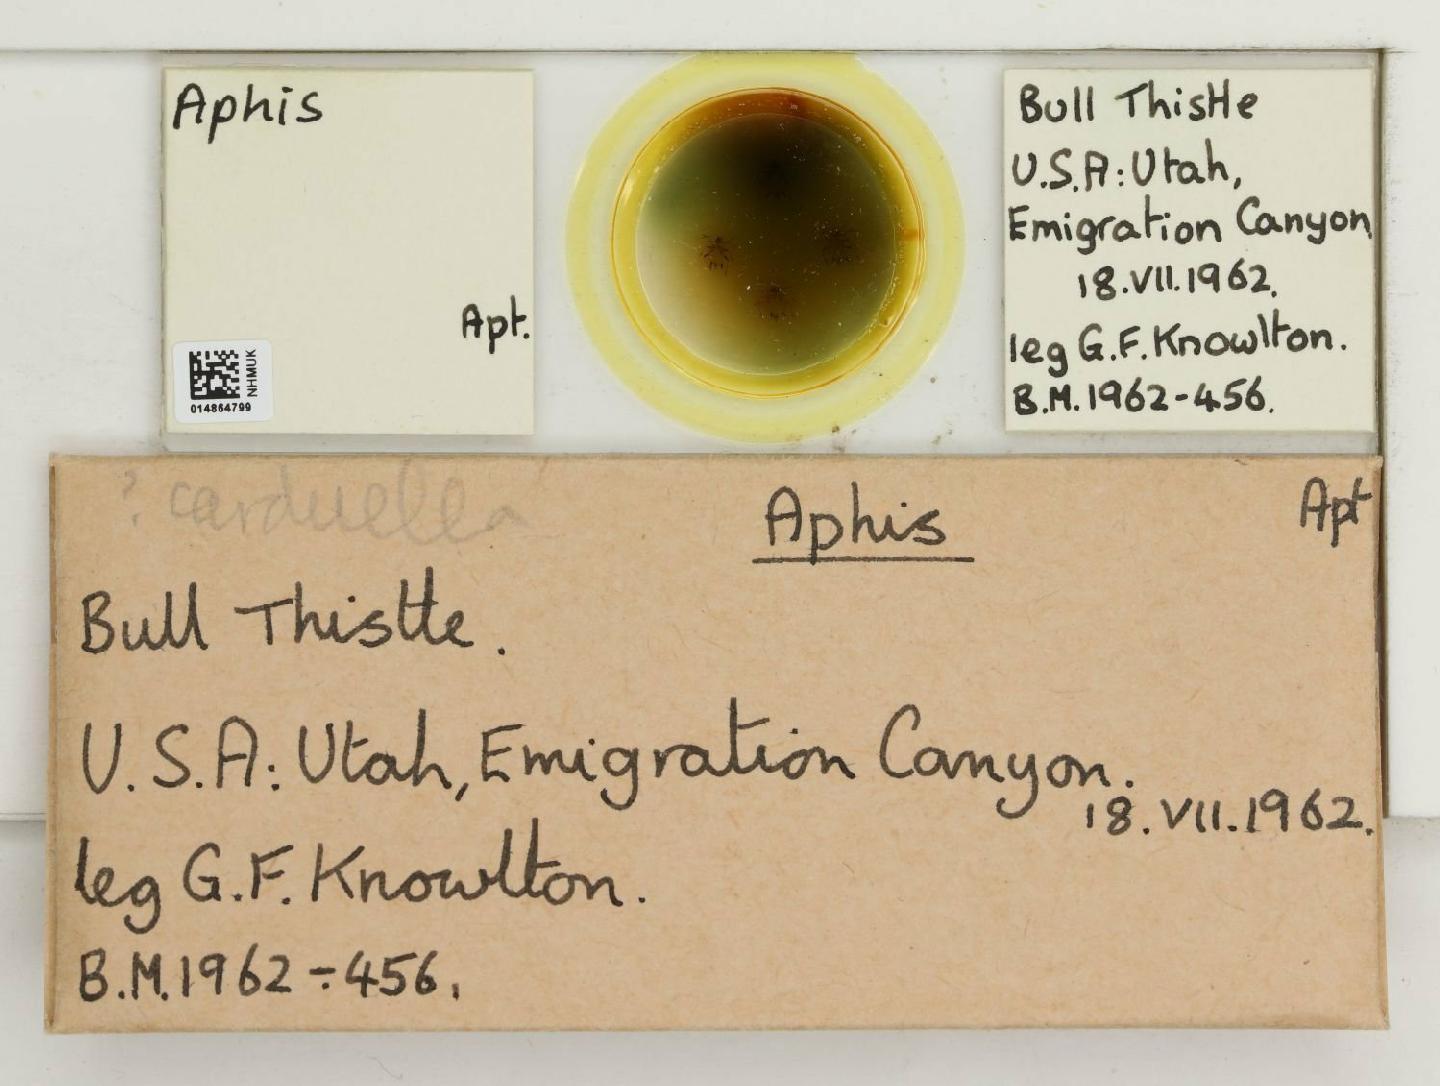 Aphis
Apt.
NHMUK
014864799
Bull Thistle
U.S.A: Utah,
Emigration Canyon
18.VII.1962.
leg G.F. Knowlton.
B.M. 1962-456.
? carduella
Aphis
Apt
Bull Thistle.
U.S.A: Utah, Emigration Canyon.
18.VII.1962.
leg G.F. Knowlton.
B.M. 1962-456.